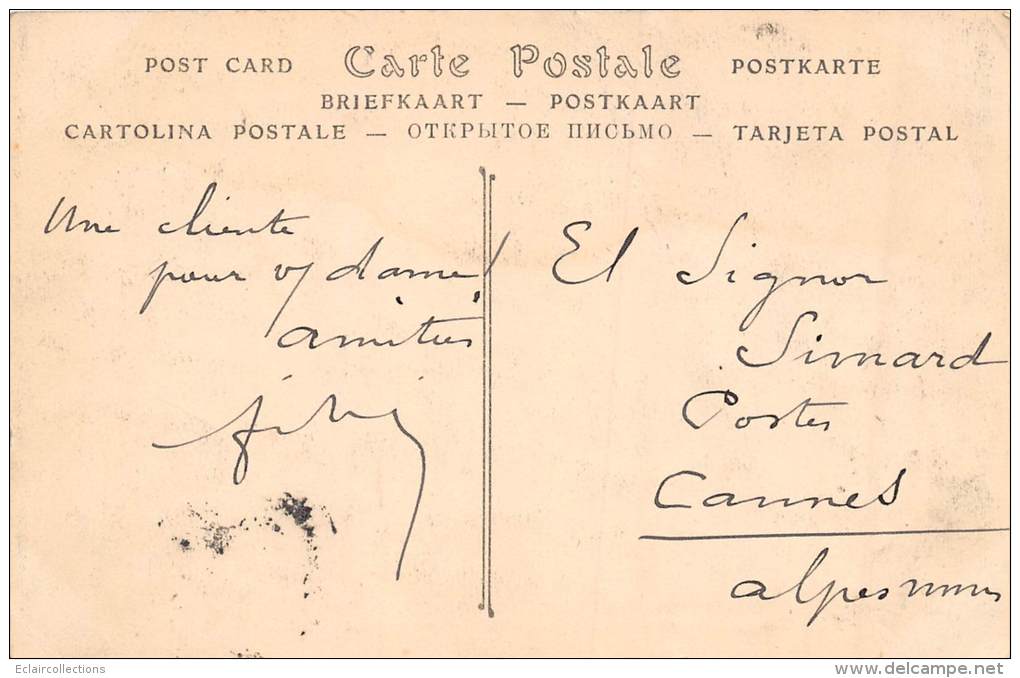 POST CARD Carte Postale POSTKARTE
BRIEFKAART — POSTKAART
CARTOLINA POSTALE — ОТКРЫТОЕ ПИСЬМО — TARJETA POSTAL
Une cliente
pour v/ dame!
amitiés
El Signor
Simard
Postes
Cannes
alpes mmes
Eclaircollections
delcampe.net